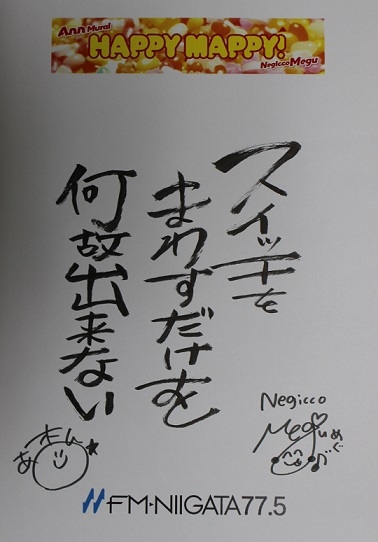 Ann Murai
HAPPY MAPPY!
Negicco Megu
スイッチを
まわすだけを
何故出来ない
あんさん
Negicco
Megu
めぐ
FM-NIIGATA 77.5